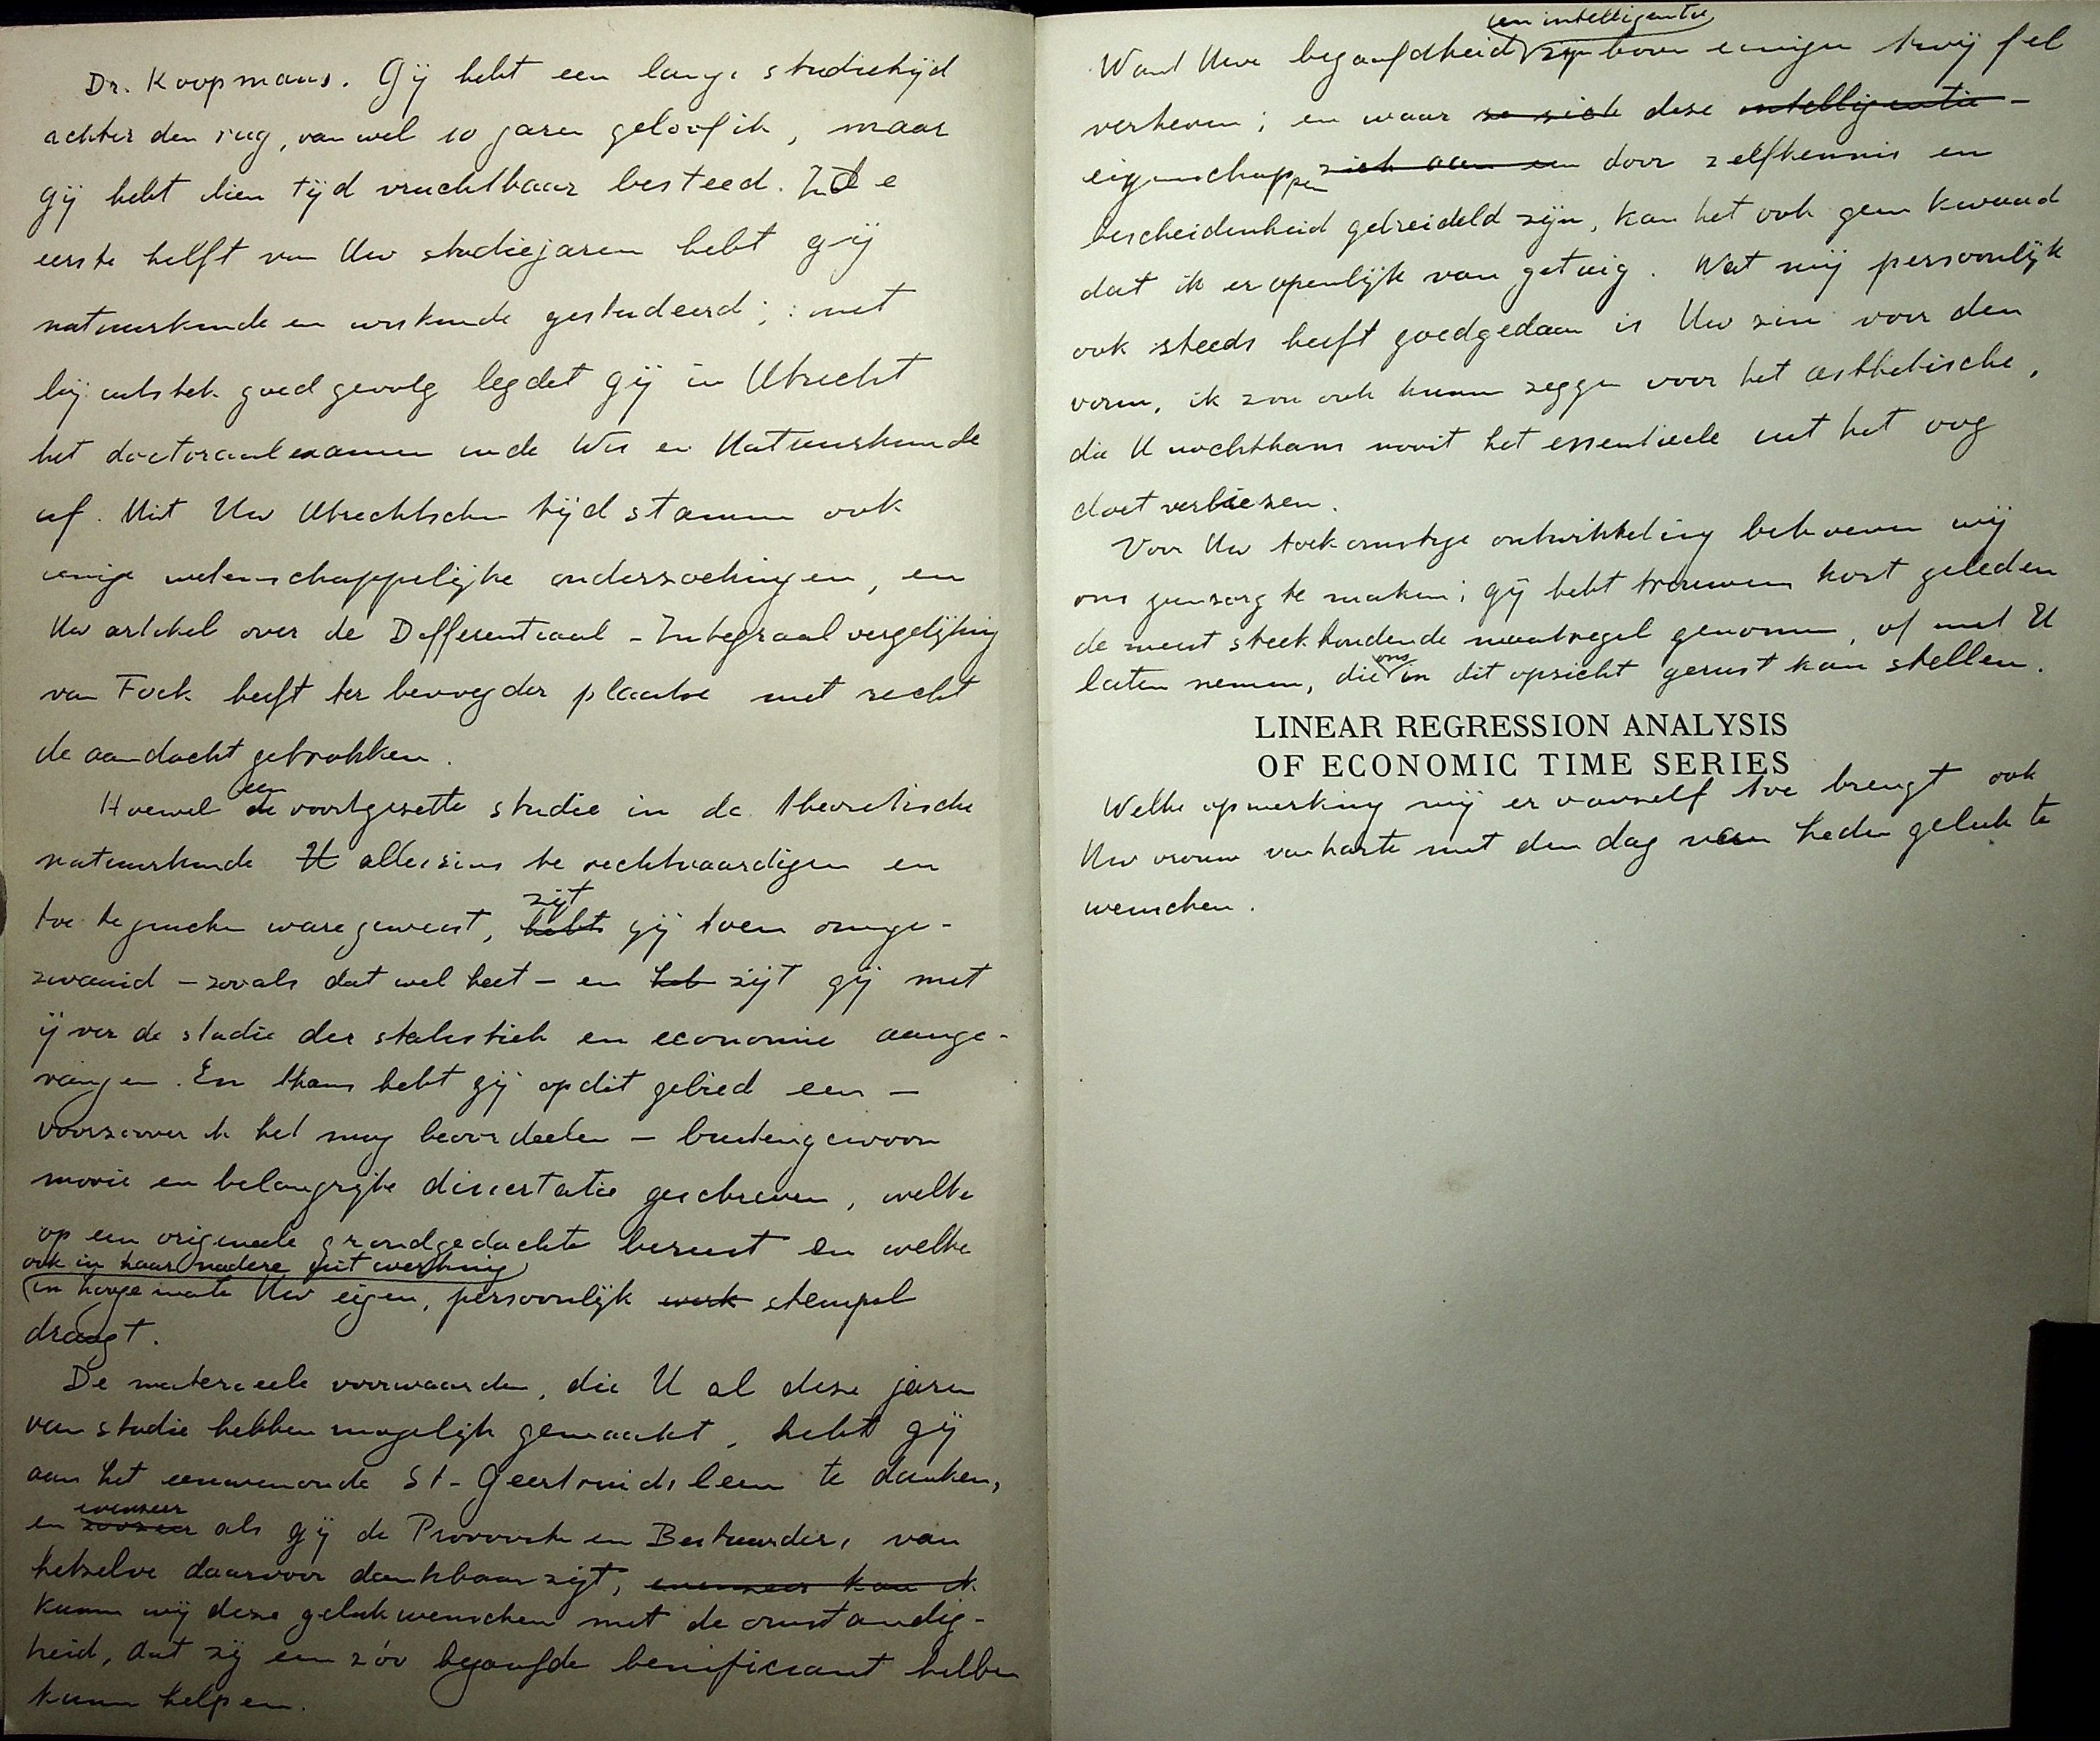 Dr. Koopmans. Gij hebt een lange studietijd
achter den rug, van wel 10 jaren geloof ik, maar
gij hebt dien tijd vruchtbaar besteed. In de
eerste helft van Uw studiejaren hebt gij
natuurkunde en wiskunde gestudeerd; met
bij uitstek goed gevolg legdet gij in Utrecht
het doctoraal examen in de Wis en Natuurkunde
af. Uit Uw Utrechtschen tijd stammen ook
eenige wetenschappelijke onderzoekingen, en
Uw artikel over de Differentiaal-Integraalvergelijking
van Fock heeft ter bevoegder plaatse met recht
de aandacht getrokken.
Hoewel een voortgezette studie in de theoretische
natuurkunde U alleszins te rechtvaardigen en
toe te juichen ware geweest, hebt zijt gij toen omge-
zwaaid - zooals dat wel heet - en heb zijt gij met
ijver de studie der statistiek en economie aange-
vangen. En thans hebt gij op dit gebied een -
voorzoover ik het mag beoordeelen - buitengewoon
mooie en belangrijke dissertatie geschreven, welke
op een origineele grondgedachte berust en welke
ook in haar nadere uitwerking
in hooge mate Uw eigen, persoonlijk werk stempel
draagt.
De materieele voorwaarden, die U al deze jaren
van studie hebben mogelijk gemaakt, hebt gij
aan het eeuwenoude St-Geertruidsleen te danken,
en zoozeer evenzeer als gij de Provoost en Bestuurders van
hetzelve daarvoor dankbaar zijt, evenzeer kan ik
kunnen wij deze gelukwenschen met de omstandig-
heid, dat zij een zóó begaafde benificiant hebben
kunnen helpen.
Want Uwe begaafdheid en intelligentie zijn boven eenigen twijfel
verheven; en waar ze zich deze intelligentie -
eigenschappen zich aan een door zelfkennis en
bescheidenheid gebreideld zijn, kan het ook geen kwaad
dat ik er openlijk van getuig. Wat mij persoonlijk
ook steeds heeft goedgedaan is Uw zin voor den
vorm, ik zou ook kunnen zeggen voor het æsthetische,
die U nochthans nooit het essentieele uit het oog
doet verliezen.
Voor Uw toekomstige ontwikkeling behoeven wij
ons geen zorg te maken; gij hebt trouwens kort geleden
de meest steekhoudende maatregel genomen, of met U
laten nemen, die ons in dit opzicht gerust kan stellen.
LINEAR REGRESSION ANALYSIS
OF ECONOMIC TIME SERIES
Welke opmerking mij er vanself toe brengt ook
Uw vrouw van harte met den dag van heden geluk te
wenschen.